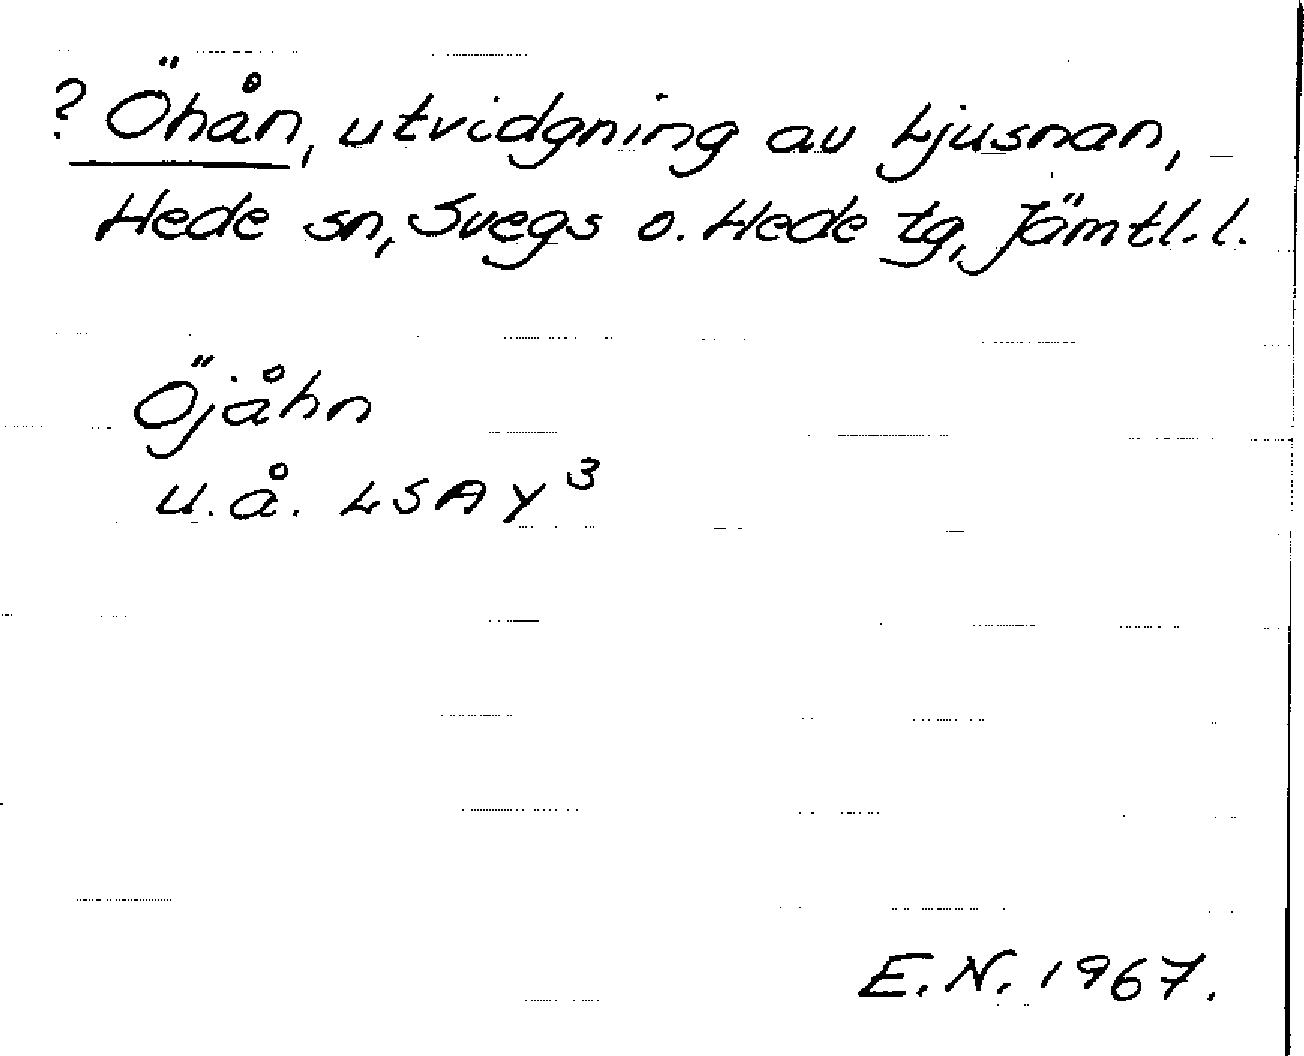 ? Öhån, utvidgning av Ljusnan,
Hede sn, Svegs o. Hede tg, Jämtl. l.
Öjåhn
u.å. LSA Y³
E.N. 1967.